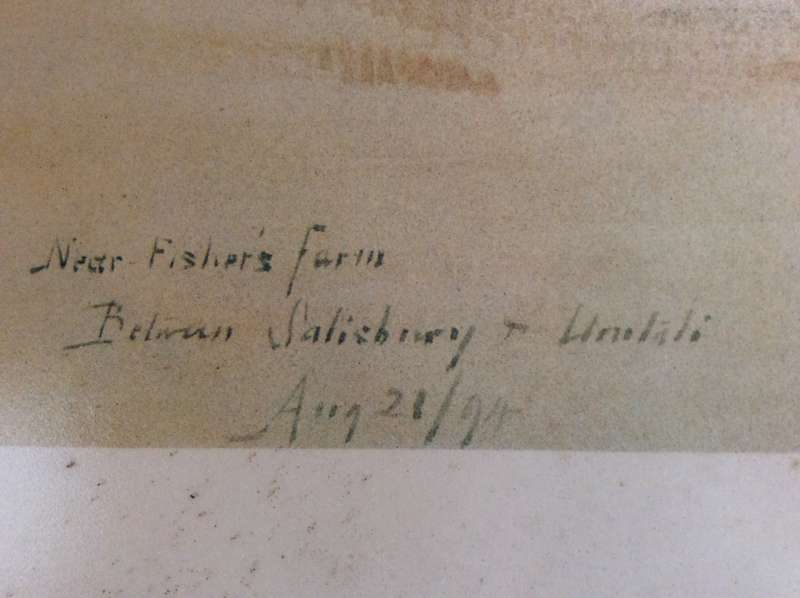 Near Fisher's farm
Between Salisbury + Umtali
Aug 21/94